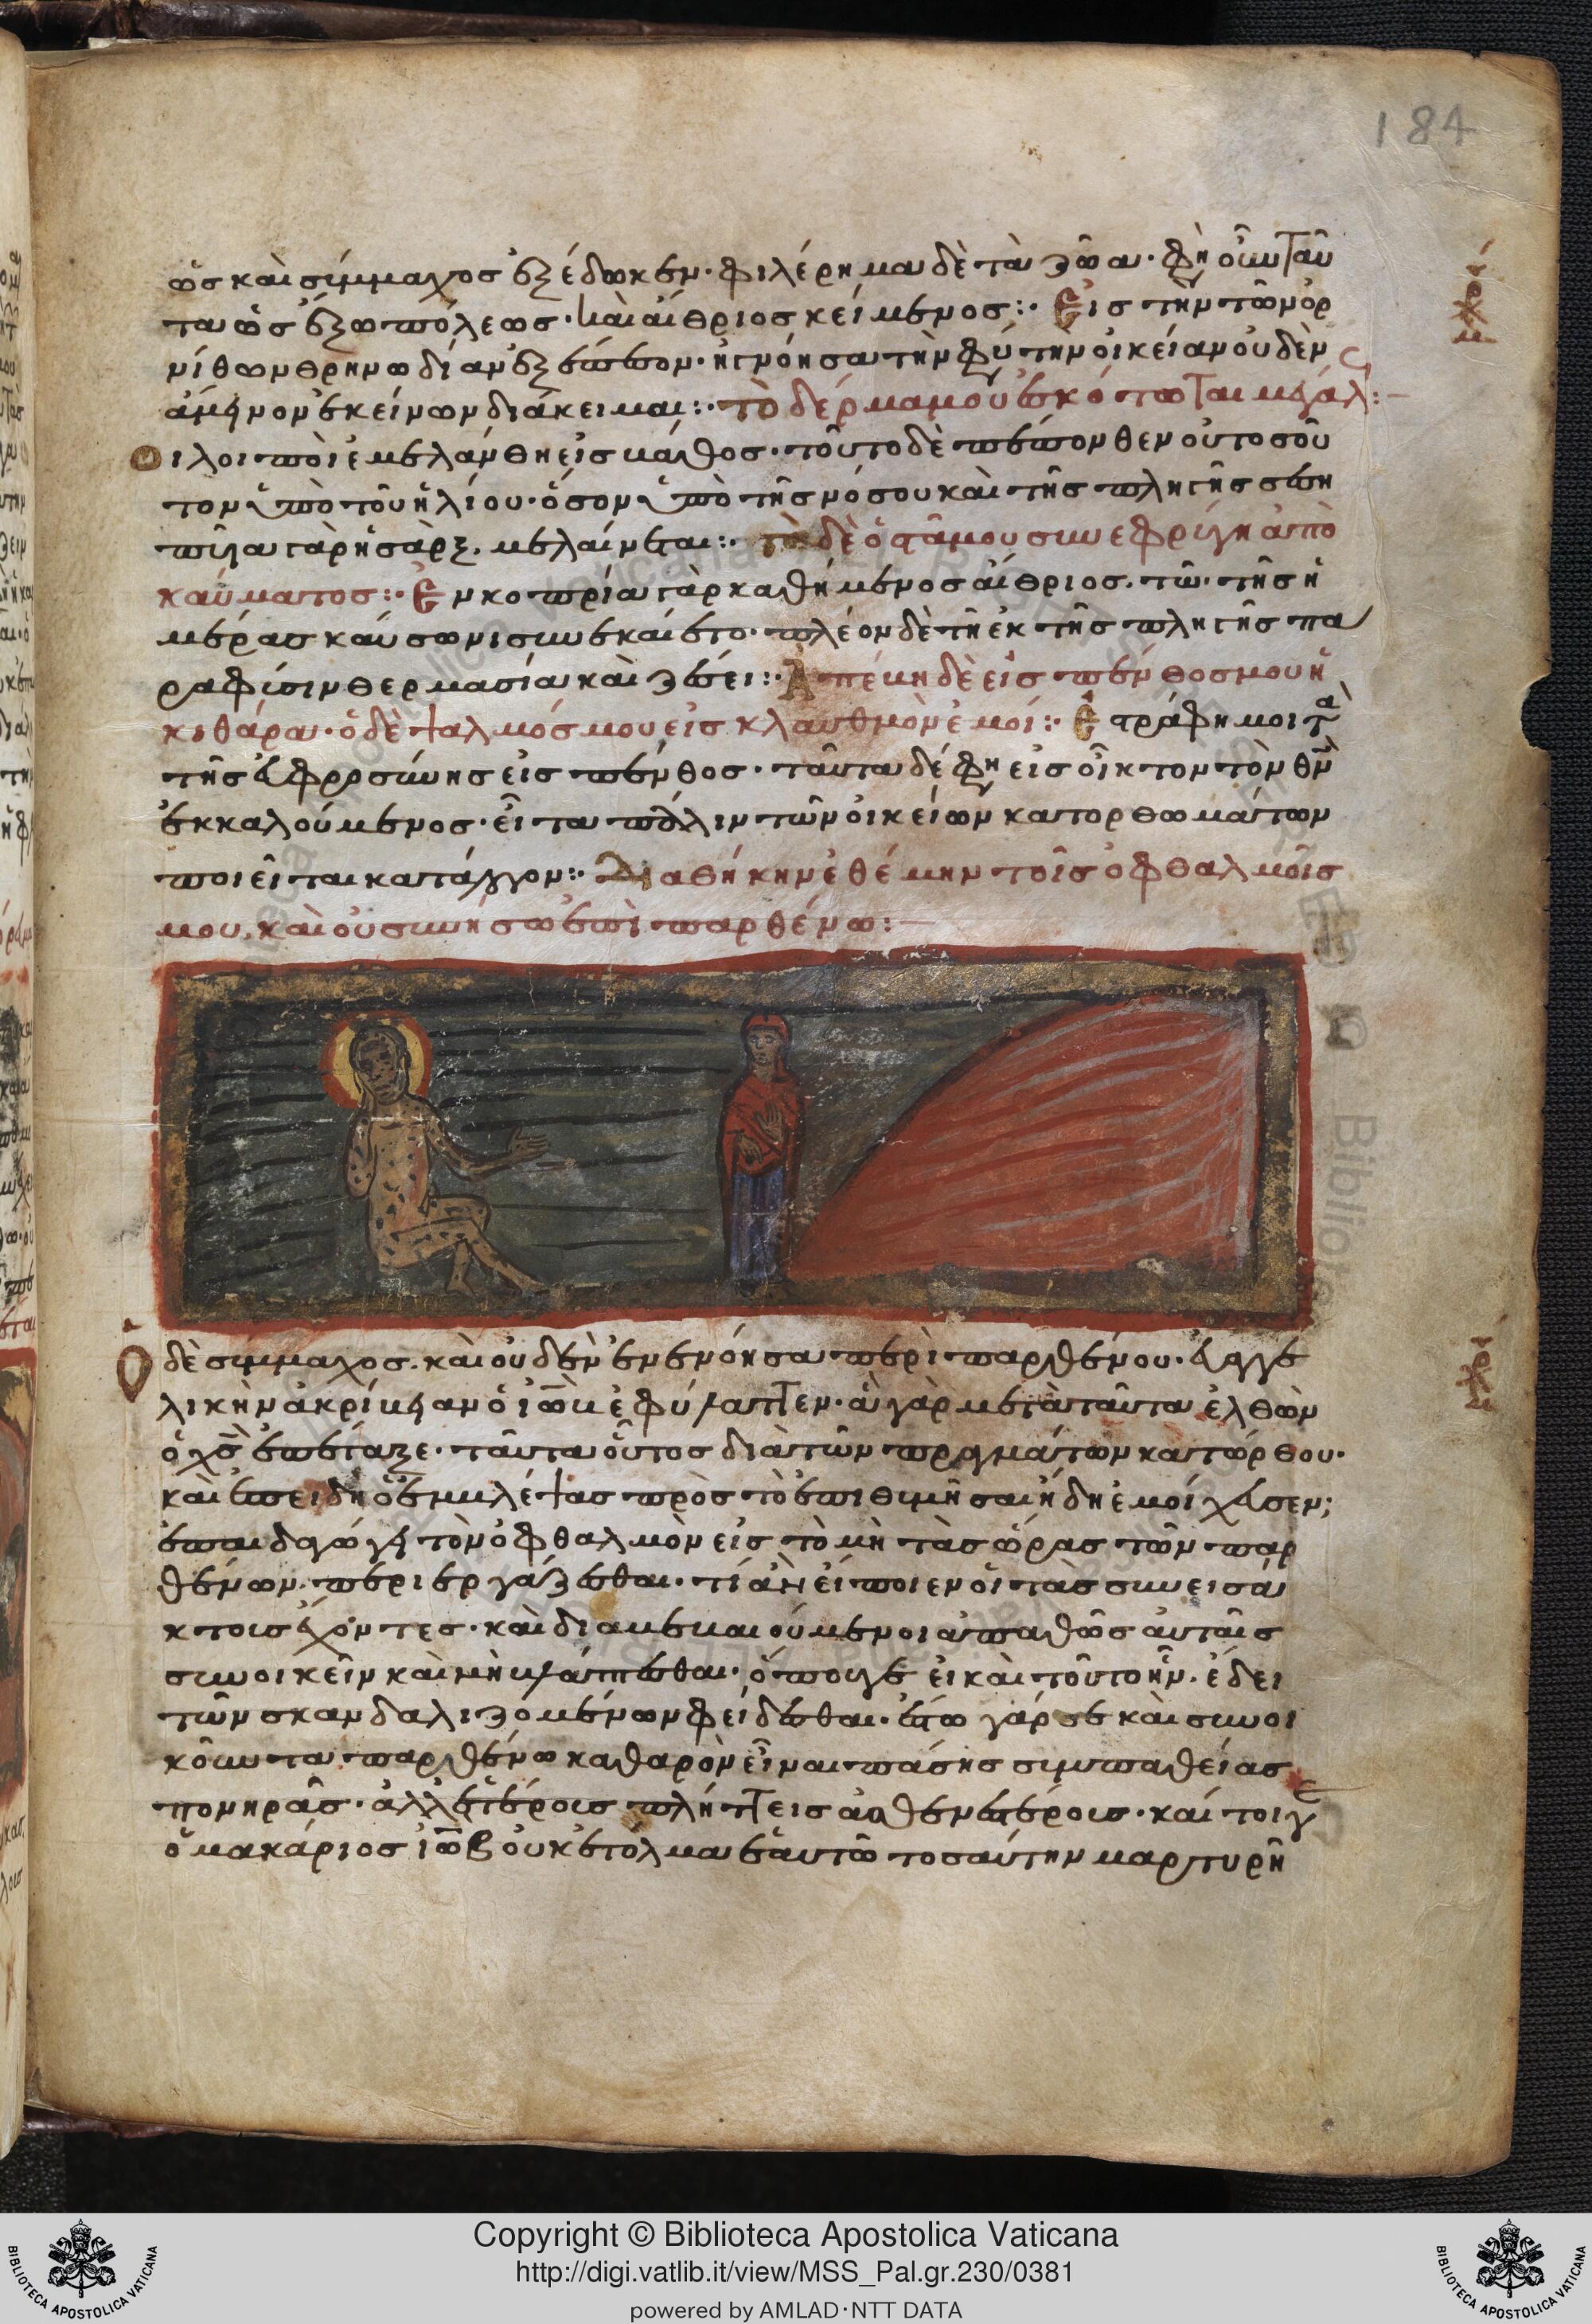 184
ὡς καὶ σύμμαχος ἐξέδωκεν· φιλέρημα δὲ τὰ ζῶα· φησὶν οὖν ταῦ
τα ὡς ἔξω πόλεως· καὶ αἴθριος κείμενος:· Εἰς τὴν τῶν ὀρ
νίθων θρηνωδίαν ἐξέπεσον· ἠγνόησα τὴν φύσιν τὴν οἰκείαν οὐδὲν
ἄμεινον ἐκείνων διάκειμαι:· τὸ δέρμα μου ἐσκότωται μεγάλως:
οἱ λοιποὶ ἐμελάνθη εἰς κάθος· τοῦτο δὲ πέπονθεν οὐ τοσοῦ
τον ὑπὸ τοῦ ἡλίου· ὅσον ὑπὸ τῆς νόσου καὶ τῆς πληγῆς σηπ
γὰρ ἡ σὰρξ μελαίνεται:· τὰ δὲ ὀστᾶ μου συνεφρίγη ἀπὸ
καύματος:· Ἐν κοπρία γὰρ καθήμενος αἴθριος· τῶ τῆς ἡ
μέρας καύσωνι συνεκαίετο· πλέον δὲ τῆ ἐκ τῆς πληγῆς πα
ραφύσιν θερμασία καὶ ζέσει:· Ἀπέβη δὲ εἰς πένθος μου ἡ
κιθάρα· ὁ δὲ ψαλμός μου εἰς κλαυθμὸν ἐμοί:· ἐστράφη μοι τὰ
τῆς εὐφροσύνης εἰς πένθος· ταῦτα δέ φησιν εἰς οἶκτον τὸν θν
ἐκκαλούμενος· εἶτα πάλιν τῶν οἰκείων κατορθωμάτων
ποιεῖται κατάλογον:· Διαθήκην ἐθέμην τοῖς ὀφθαλμοῖς
μου, καὶ οὐ συνήσω ἐπὶ παρθένω:
Ὁ δὲ σύμμαχος· καὶ οὐδὲν ἐνενόησα περὶ παρθένου· εὐαγγε
λικὴν ἀκρίβειαν ὁ ἰὼβ ἐφύλαττεν· ἃ γὰρ μετὰ ταῦτα ἐλθὼν
ὁ χς ἐπέταξε· ταῦτα οὗτος διὰ τῶν πραγμάτων κατώρθου·
καὶ ἐπειδὴ ὁ ἐμβλέψας πρὸς τὸ ἐπιθυμῆσαι ἤδη ἐμοίχευσεν;
ἐπαιδαγώγει τὸν ὀφθαλμὸν εἰς τὸ μὴ τὰς ὥρας τῶν παρ
θένων περιεργάζεσθαι· τί ἂν εἴποιεν οἱ τὰς συνεισά
κτους ἔχοντες· καὶ διαβεβαιούμενοι ἀπαθῶς αὐταῖς
συνοικεῖν καὶ μὴ βλάπτεσθαι· ὅπου γε εἰ καὶ τοῦτο ἦν· ἔδει
τῶν σκανδαλιζομένων φείδεσθαι· ἔστω γάρ σε καὶ συνοι
κοῦντα παρθένω καθαρὸν εἶναι πάσης συμπαθείας
πονηρᾶς· ἀλλ' ἑτέρους πλήττεις ἀσθενεστέρους· καίτοιγε
ὁ μακάριος ἰὼβ οὐκ ἐτόλμα ἑαυτῶ τοσαύτην μαρτυρῆ
Copyright © Biblioteca Apostolica Vaticana
http://digi.vatlib.it/view/MSS_Pal.gr.230/0381
powered by AMLAD·NTT DATA
BIBLIOTECA APOSTOLICA VATICANA
BIBLIOTECA APOSTOLICA VATICANA